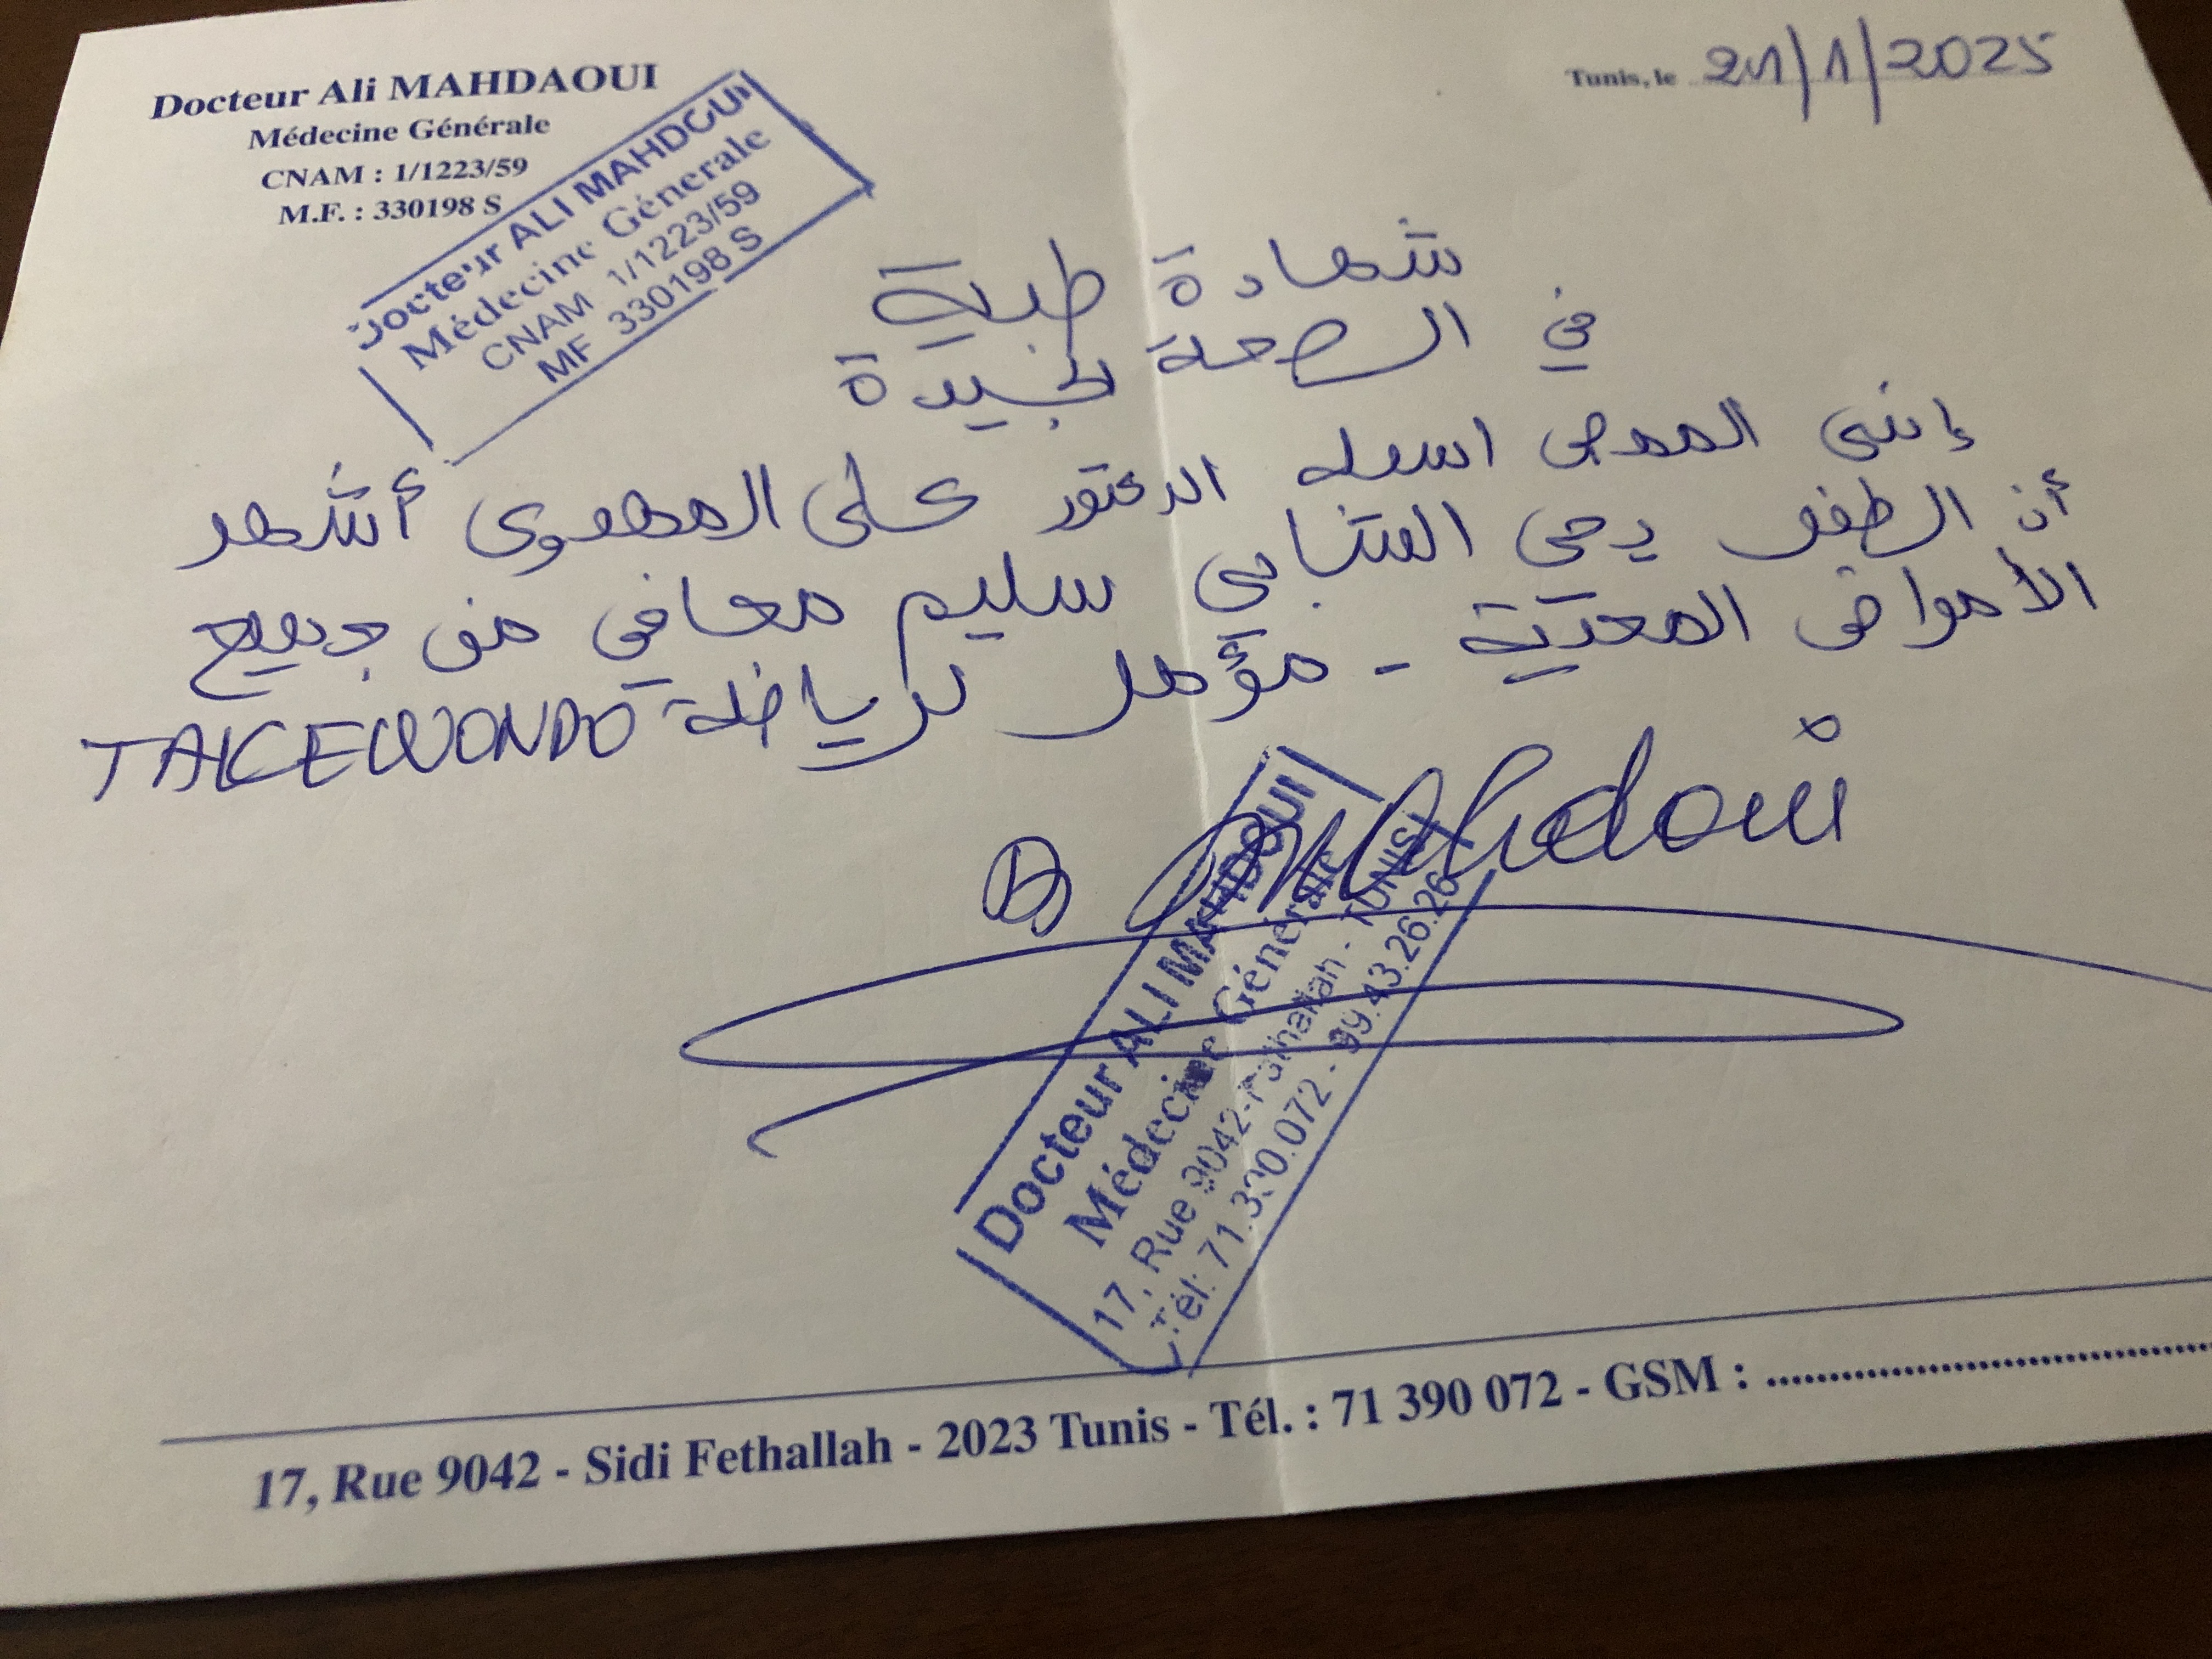 Docteur Ali MAHDAOUI
Médecine Générale
CNAM : 1/1223/59
M.F. : 330198 S
Docteur ALI MAHDOUI
Médecine Génerale
CNAM 1/1223/59
MF 330198 S
Tunis, le 21/1/2025
شهادة طبية
في الصحة الجيدة
إنني الممضي اسفله الدكتور علي المهدوي أشهد
أن الطفل يحي سليم معافي من جميع
الأمراض المعدية - مؤهل لرياضة TAKEWONDO
Dr Mahdoui
Docteur ALI MAHDOUI
Médecine Générale
17, Rue 9042 - Fathallah - TUNIS
Tél: 71.390.072 - 99.43.26.26
17, Rue 9042 - Sidi Fethallah - 2023 Tunis - Tél. : 71 390 072 - GSM : ........................